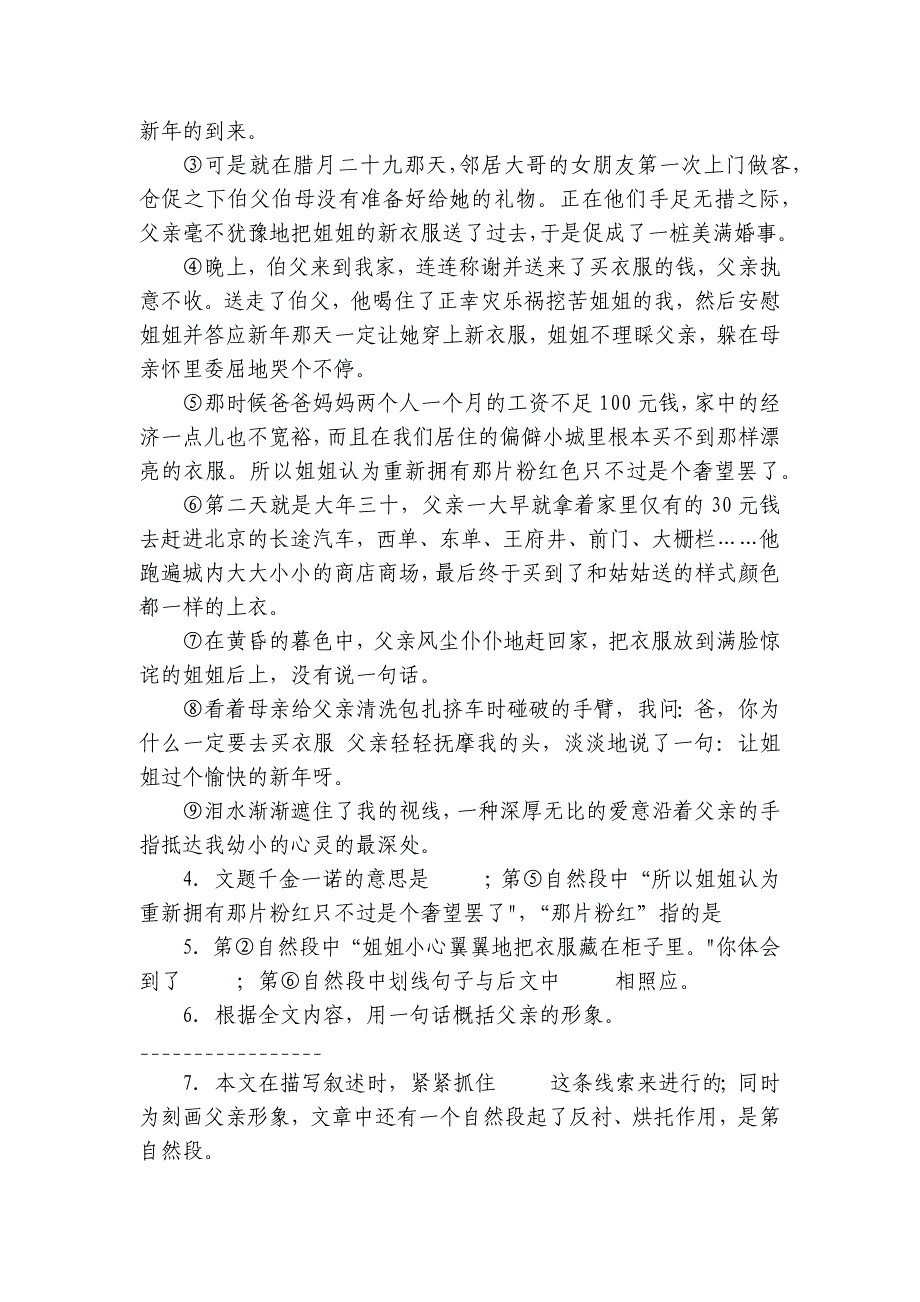 新年的到来。
③可是就在腊月二十九那天,邻居大哥的女朋友第一次上门做客,
仓促之下伯父伯母没有准备好给她的礼物。正在他们手足无措之际,
父亲毫不犹豫地把姐姐的新衣服送了过去,于是促成了一桩美满婚事。
④晚上，伯父来到我家，连连称谢并送来了买衣服的钱，父亲执
意不收。送走了伯父，他喝住了正幸灾乐祸挖苦姐姐的我，然后安慰
姐姐并答应新年那天一定让她穿上新衣服，姐姐不理睬父亲，躲在母
亲怀里委屈地哭个不停。
⑤那时候爸爸妈妈两个人一个月的工资不足 100 元钱,家中的经
济一点儿也不宽裕,而且在我们居住的偏僻小城里根本买不到那样漂
亮的衣服。所以姐姐认为重新拥有那片粉红色只不过是个奢望罢了。
⑥第二天就是大年三十，父亲一大早就拿着家里仅有的 30 元钱
去赶进北京的长途汽车，西单、东单、王府井、前门、大栅栏……他
跑遍城内大大小小的商店商场,最后终于买到了和姑姑送的样式颜色
都一样的上衣。
⑦在黄昏的暮色中，父亲风尘仆仆地赶回家，把衣服放到满脸惊
诧的姐姐后上，没有说一句话。
⑧看着母亲给父亲清洗包扎挤车时碰破的手臂，我问: 爸，你为
什么一定要去买衣服 父亲轻轻抚摩我的头，淡淡地说了一句：让姐
姐过个愉快的新年呀。
⑨泪水渐渐遮住了我的视线,一种深厚无比的爱意沿着父亲的手
指抵达我幼小的心灵的最深处。
4．文题千金一诺的意思是 ;第⑤自然段中“所以姐姐认为
重新拥有那片粉红只不过是个奢望罢了"，“那片粉红”指的是
5．第②自然段中“姐姐小心翼翼地把衣服藏在柜子里。"你体会
到了 ；第⑥自然段中划线句子与后文中 相照应。
6．根据全文内容，用一句话概括父亲的形象。
-----------------
7．本文在描写叙述时，紧紧抓住 这条线索来进行的; 同时
为刻画父亲形象，文章中还有一个自然段起了反衬、烘托作用，是第
自然段。